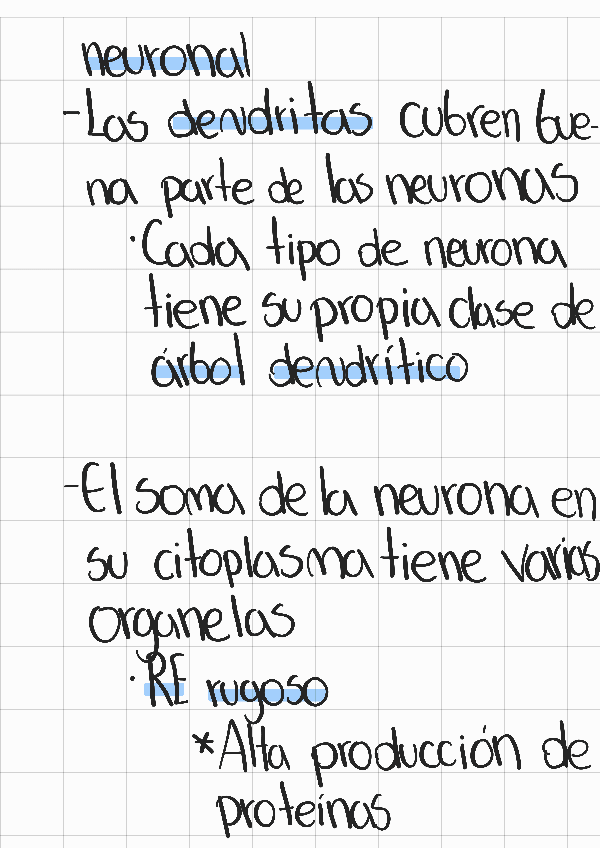 neuronal
-Las dendritas cubren bue-
na parte de las neuronas
·Cada tipo de neurona
tiene su propia clase de
árbol dendrítico
-El soma de la neurona en
su citoplasma tiene varias
organelas
·RE rugoso
*Alta producción de
proteínas